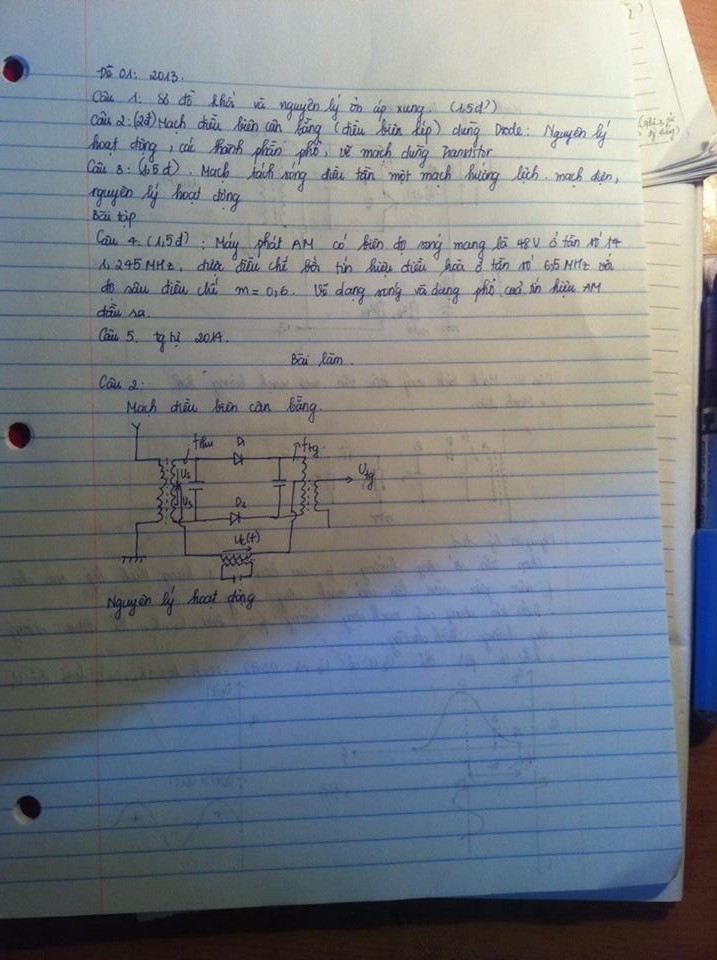 Đề 01: 2013.
Câu 1: Sơ đồ khối và nguyên lý ổn áp xung. (1,5đ)
Câu 2: (2đ) Mạch điều biên cân bằng (điều biên kép) dùng Diode: Nguyên lý
hoạt động, các thành phần phổ, vẽ mạch dùng Tranzistor
Câu 3: (1,5đ). Mạch tách sóng điều tần một mạch hưởng lệch. mạch điện,
nguyên lý hoạt động
Bài tập
Câu 4. (1,5đ): Máy phát AM có biên độ sóng mang là 48V ở tần số
1,245 MHz, được điều chế bởi tín hiệu điều hoà ở tần số 6,5 MHz với
độ sâu điều chế m = 0,6. Vẽ dạng sóng và dạng phổ của tín hiệu AM
đầu ra.
Câu 5. tg tự 2014.
Bài làm.
Câu 2:
Mạch điều biên cân bằng.
D1
ftg
Us
Utg
Us
D2
Nguyên lý hoạt động